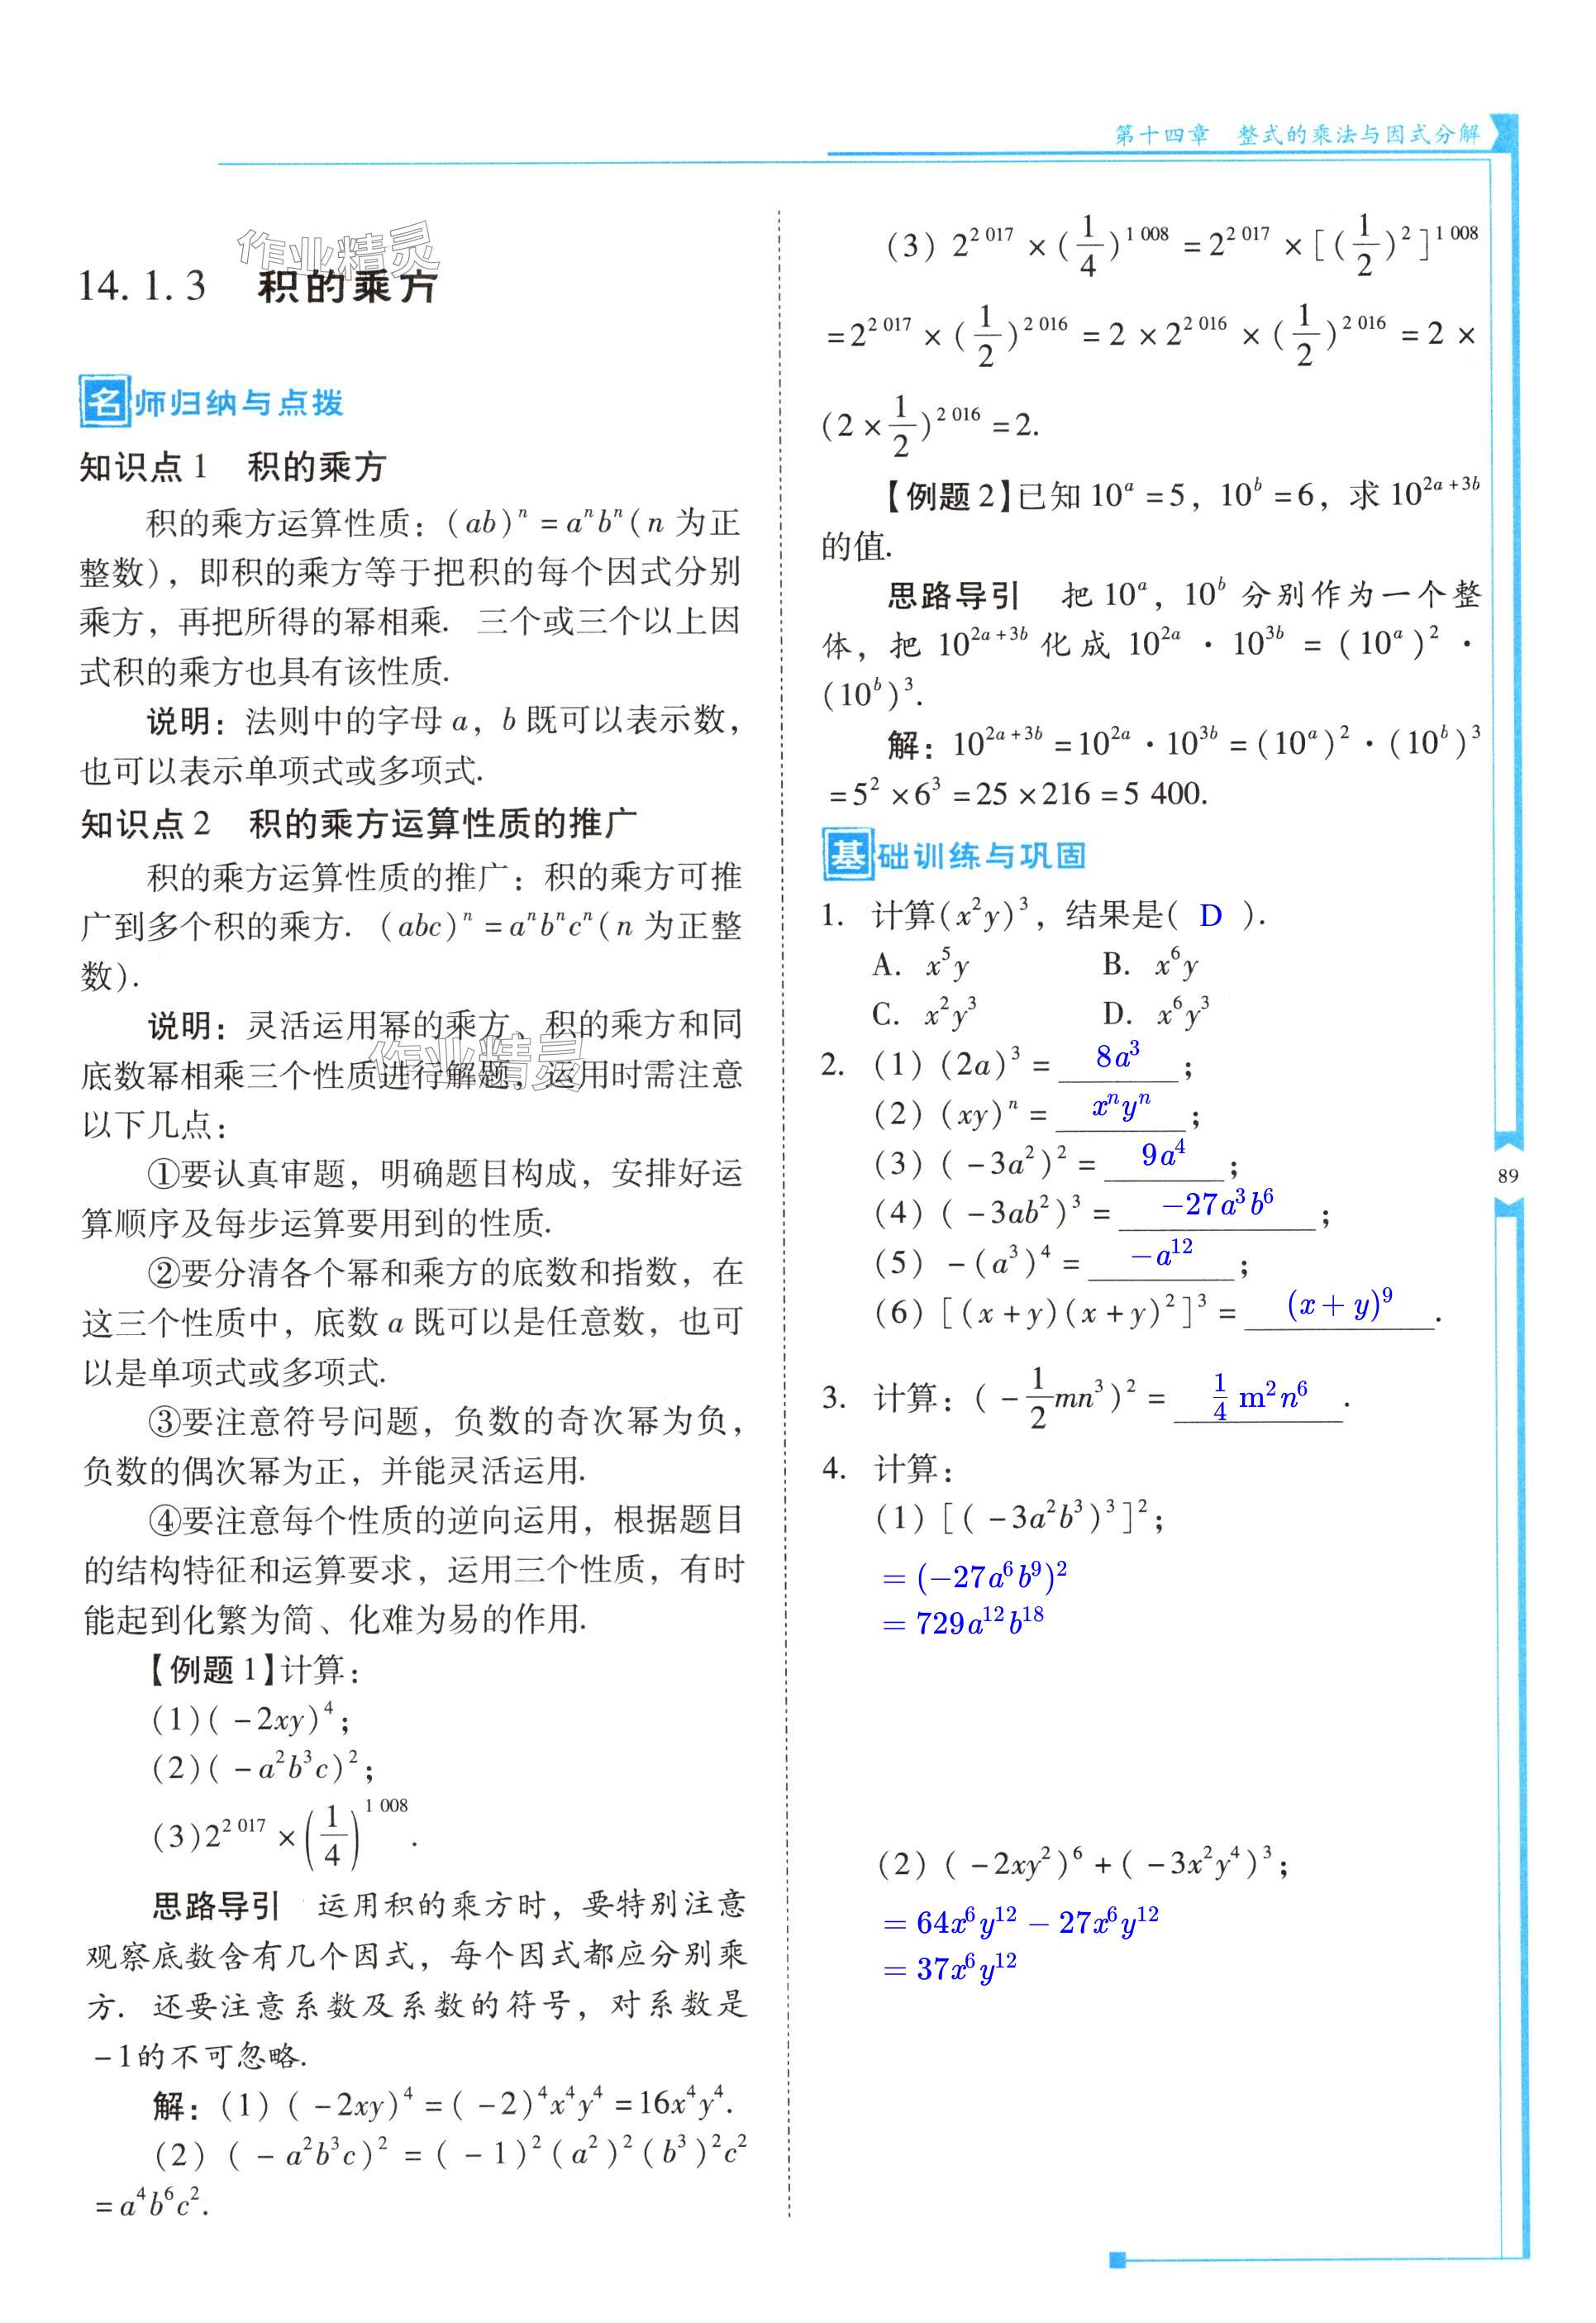 第十四章　整式的乘法与因式分解
作业精灵
14. 1. 3　积的乘方
名师归纳与点拨
知识点 1　积的乘方
积的乘方运算性质：(ab)ⁿ = aⁿbⁿ(n 为正
整数)，即积的乘方等于把积的每个因式分别
乘方，再把所得的幂相乘. 三个或三个以上因
式积的乘方也具有该性质.
说明：法则中的字母 a，b 既可以表示数，
也可以表示单项式或多项式.
知识点 2　积的乘方运算性质的推广
积的乘方运算性质的推广：积的乘方可推
广到多个积的乘方. (abc)ⁿ = aⁿbⁿcⁿ(n 为正整
数).
说明：灵活运用幂的乘方、积的乘方和同
底数幂相乘三个性质进行解题，运用时需注意
作业精灵
以下几点：
①要认真审题，明确题目构成，安排好运
算顺序及每步运算要用到的性质.
②要分清各个幂和乘方的底数和指数，在
这三个性质中，底数 a 既可以是任意数，也可
以是单项式或多项式.
③要注意符号问题，负数的奇次幂为负，
负数的偶次幂为正，并能灵活运用.
④要注意每个性质的逆向运用，根据题目
的结构特征和运算要求，运用三个性质，有时
能起到化繁为简、化难为易的作用.
【例题 1】计算：
(1)( -2xy)⁴；
(2)( -a²b³c)²；
(3)2^{2 017} × (1/4)^{1 008}.
思路导引　运用积的乘方时，要特别注意
观察底数含有几个因式，每个因式都应分别乘
方. 还要注意系数及系数的符号，对系数是
-1的不可忽略.
解：(1) ( -2xy)⁴ = ( -2)⁴x⁴y⁴ = 16x⁴y⁴.
(2) ( -a²b³c)² = ( -1)²(a²)²(b³)²c²
= a⁴b⁶c².
(3) 2^{2 017} × (1/4)^{1 008} = 2^{2 017} × [(1/2)²]^{1 008}
= 2^{2 017} × (1/2)^{2 016} = 2 × 2^{2 016} × (1/2)^{2 016} = 2 ×
(2 × 1/2)^{2 016} = 2.
【例题 2】已知 10^a = 5，10^b = 6，求 10^{2a+3b}
的值.
思路导引　把 10^a，10^b 分别作为一个整
体，把 10^{2a+3b} 化成 10^{2a} · 10^{3b} = (10^a)² ·
(10^b)³.
解：10^{2a+3b} = 10^{2a} · 10^{3b} = (10^a)² · (10^b)³
= 5² × 6³ = 25 × 216 = 5 400.
基础训练与巩固
1. 计算(x²y)³，结果是( D ).
A. x⁵y　　B. x⁶y
C. x²y³　　D. x⁶y³
2. (1) (2a)³ = 8a³；
(2) (xy)ⁿ = xⁿyⁿ；
(3) ( -3a²)² = 9a⁴；
(4) ( -3ab²)³ = -27a³b⁶；
(5) -(a³)⁴ = -a¹²；
(6) [(x+y)(x+y)²]³ = (x+y)⁹.
3. 计算：( -1/2 mn³)² = 1/4 m²n⁶.
4. 计算：
(1) [( -3a²b³)³]²；
= (-27a⁶b⁹)²
= 729a¹²b¹⁸
(2) ( -2xy²)⁶ + ( -3x²y⁴)³；
= 64x⁶y¹² - 27x⁶y¹²
= 37x⁶y¹²
89